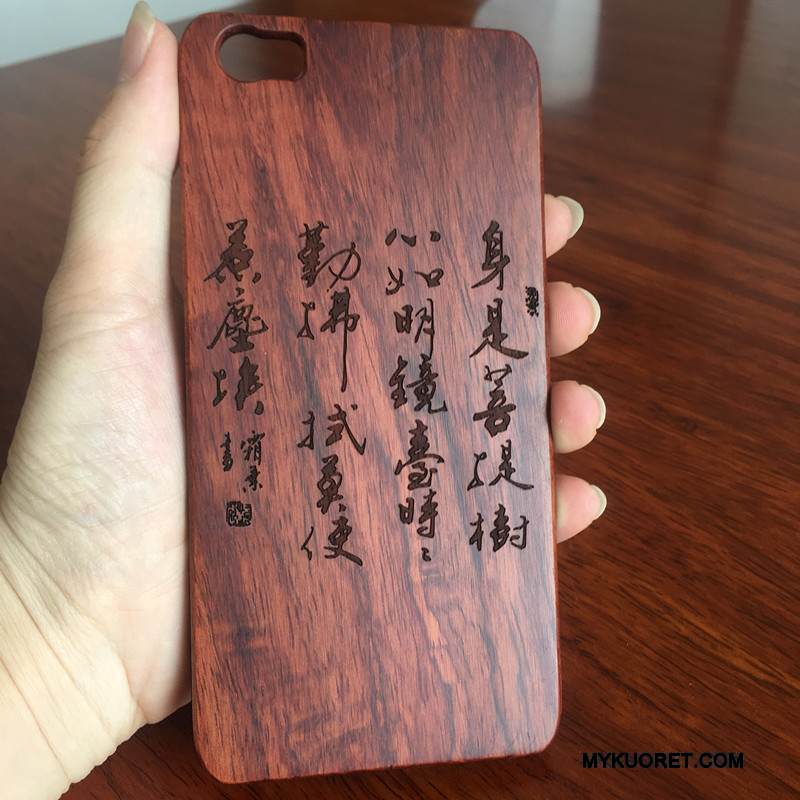 身是菩提樹
心如明鏡臺時〻
勤拂拭莫使
惹塵埃
MYKUORET.COM